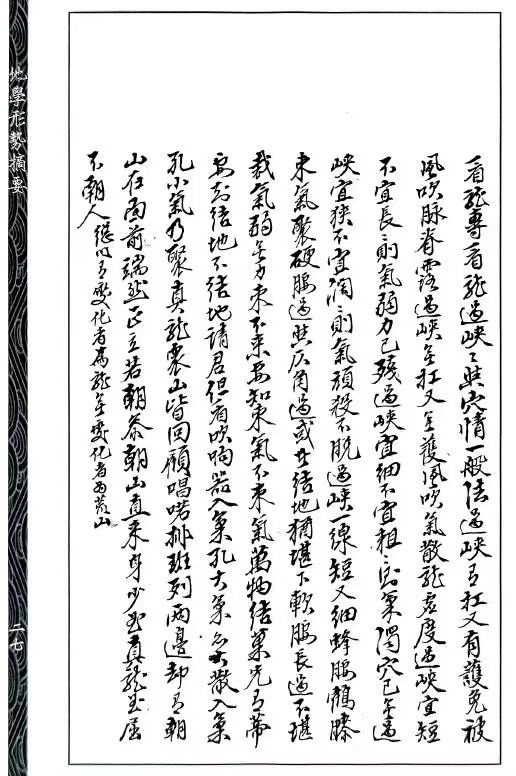 看龍專看龍過峽〻與穴情一般法過峽有扛又有護免被
風吹脉脊露過峽無扛又無護風吹氣散龍虛度過峽宜短
不宜長〻則氣弱力已殘過峽宜細不宜粗〻則氣濁穴已無過
峽宜狹不宜濶〻則氣頑殺不脫過峽一線短又細蜂腰鶴膝
束氣聚硬腰過與仄角過或結地猶堪下軟腰長過不堪
裁氣弱無力束不来要知束氣不束氣萬物結菓先有蒂
要知結地不結地請君但看吹响器入氣孔大氣必散入氣
孔小氣乃聚真龍衆山皆回顧唱喏排班列兩邊却有朝
山在面前端然正立若朝參朝山直来身少屈真龍出屈
不朝人 縂以有變化者為龍無變化者為荒山
地學形勢摘要
二七